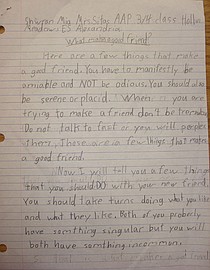 Mrs. Sitar AAP 3/4 class
Meadows ES Alexandria
What makes a good friend?
Here are a few things that make
a good friend. You have to manifestly be
amiable and NOT be odious. You should also
be serene or placid. When you are
trying to make a friend don't be
Do not talk to fast or you will perplex
them. These are a few things that makes
a good friend.
Now I will tell you a few things
that you should DO with your new friend.
You should take turns doing what you like
and what they like. Both of you properly
have somthing singular but you will
both have somthing incommon.
That